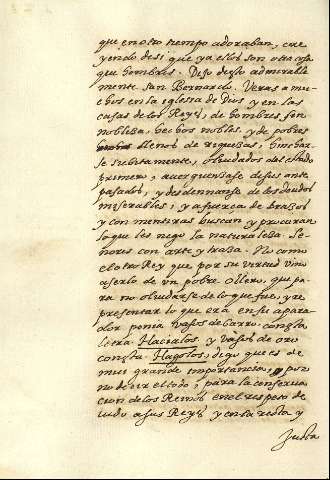 que en otro tiempo adoraban, cre
yendo de si que ya ellos son otra cosa
que hombres. Dijo desto admirable
mente San Bernardo. Veras a mu
chos en la iglesia de Dios y en las
casas de los Reyes, de hombres sin
nobleza, hechos nobles, y de pobres
llenos de riquezas, hinchar
se subitamente, olvidados del estado
primero, averguenzase de sus ante
pasados, y desdennanse de los deudos
miserables, y a fuerza de brazos
y con mentiras buscan y procuran
lo que les nego la naturaleza. Se
nores con arte y traza. No como
el otro Rey que por su virtud vino
a serlo de un pobre ollero, que pa
ra no olvidarse de lo que fue, y re
presentar lo que era en su apara
dor ponia vasos de barro con esta
letra Hacialos, y vasos de oro
con esta Hagolos, digo que es de
mui grande importancia, por
no decir el todo, para la conserva
cion de los Reinos en el respeto de
vido a sus Reyes y en la recta y
justa